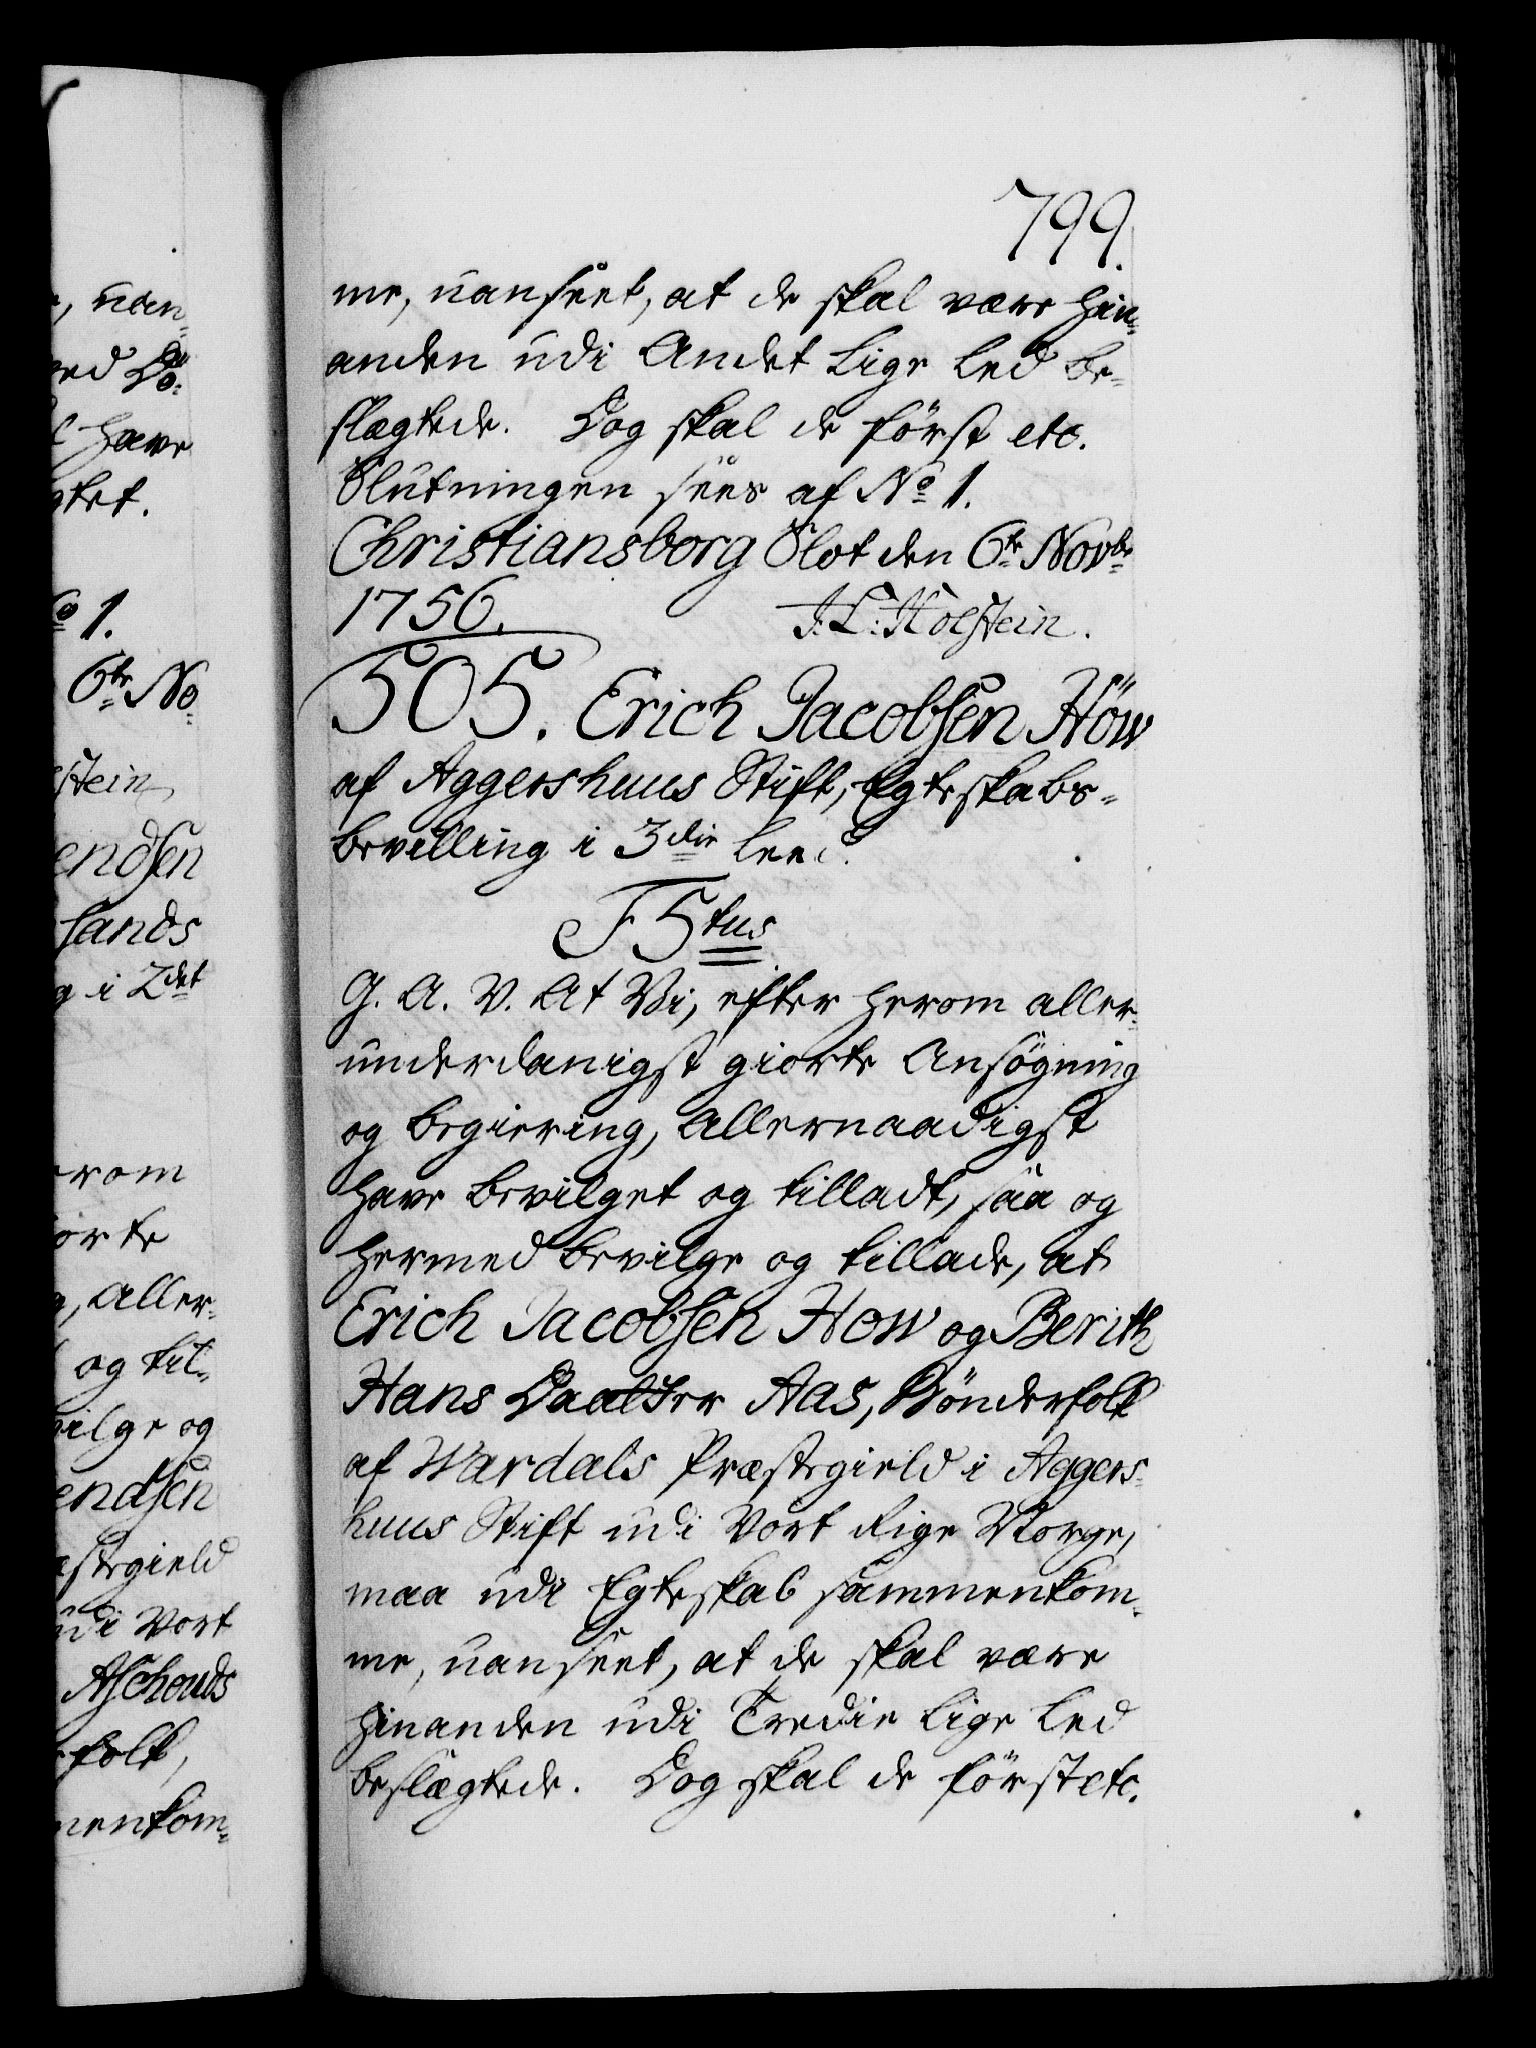 799.
me, uanseet, at de skal være hin-
anden udi Andet Lige Led be-
slægtede. Dog skal de först etc.
Slutningen sees af No 1.
Christiansborg Slot den 6te Novbr
1756. J. L. Holstein.
505. Erich Jacobsen Höw
af Aggershuus Stift, Egteskabs-
bevilling i 3die Leed.
F 5tus
G. A. V. At Vi, efter herom aller-
underdanigst giorte Ansögning
og begiering, Allernaadigst
have bevilget og tilladt, saa og
hermed bevilge og tillade, at
Erich Jacobsen How og Berith
Hans Daatter Aas, Bönderfolk
af Wardals Præstegield i Aggers-
huus Stift udi Vort Rige Norge,
maa udi Egteskab sammenkom-
me, uanseet, at de skal være
hinanden udi Tredie Lige Led
beslægtede. Dog skal de först etc.
, uan-
ed Do-
have
gtet.
No 1.
6te No-
stein
endsen
lands
g i 2det
erom
iorte
g, Aller-
og til-
vilge og
endsen
æstegield
udi Vort
Aschouds
folk,
menkom-